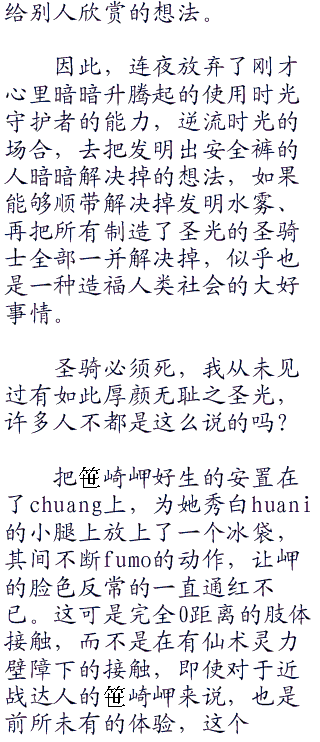 给别人欣赏的想法。
因此，连夜放弃了刚才
心里暗暗升腾起的使用时光
守护者的能力，逆流时光的
场合，去把发明出安全裤的
人暗暗解决掉的想法，如果
能够顺带解决掉发明水雾、
再把所有制造了圣光的圣骑
士全部一并解决掉，似乎也
是一种造福人类社会的大好
事情。
圣骑必须死，我从未见
过有如此厚颜无耻之圣光，
许多人不都是这么说的吗？
把笹崎岬好生的安置在
了chuang上，为她秀白huani
的小腿上放上了一个冰袋，
其间不断fumo的动作，让岬
的脸色反常的一直通红不
已。这可是完全0距离的肢体
接触，而不是在有仙术灵力
壁障下的接触，即使对于近
战达人的笹崎岬来说，也是
前所未有的体验，这个